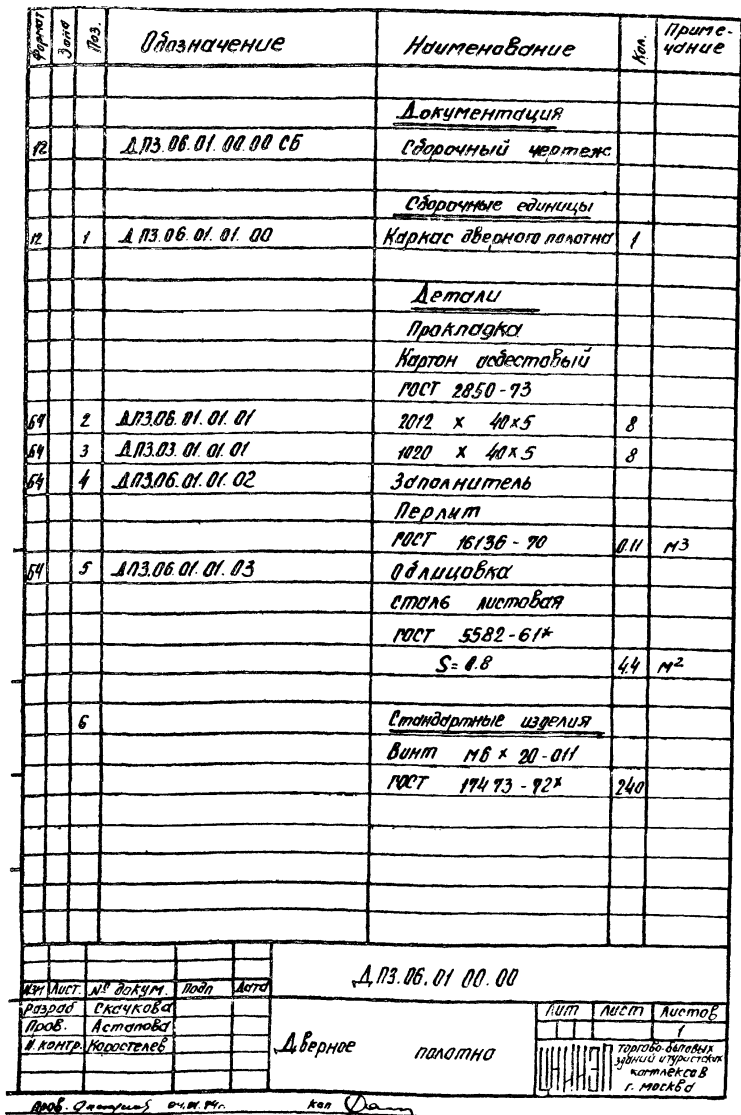 Формат Зона Поз. Обозначение Наименование Кол. Приме-
чание
Документация
12 ДПЗ.06.01.00.00 СБ Сборочный чертеж
Сборочные единицы
12 1 ДПЗ.06.01.01.00 Каркас дверного полотна 1
Детали
Прокладка
Картон асбестовый
ГОСТ 2850-73
64 2 ДПЗ.06.01.01.01 2012 х 40х5 8
64 3 ДПЗ.03.01.01.01 1020 х 40х5 8
64 4 ДПЗ.06.01.01.02 Заполнитель
Перлит
ГОСТ 16136-70 0.11 м3
64 5 ДПЗ.06.01.01.03 Облицовка
сталь листовая
ГОСТ 5582-61*
S=0.8 4.4 м2
6 Стандартные изделия
Винт М6 х 20-011
ГОСТ 17473-72* 240
ДПЗ.06.01 00.00
Изм Лист. № докум. Подп Дата
Разраб Скачкова
Пров. Астапова
Н.контр. Коростелев
Дверное полотно
Лит Лист Листов
1
ЦНИИЭП торгово-бытовых
зданий и туристских
комплексов
г. москва
пров. кап